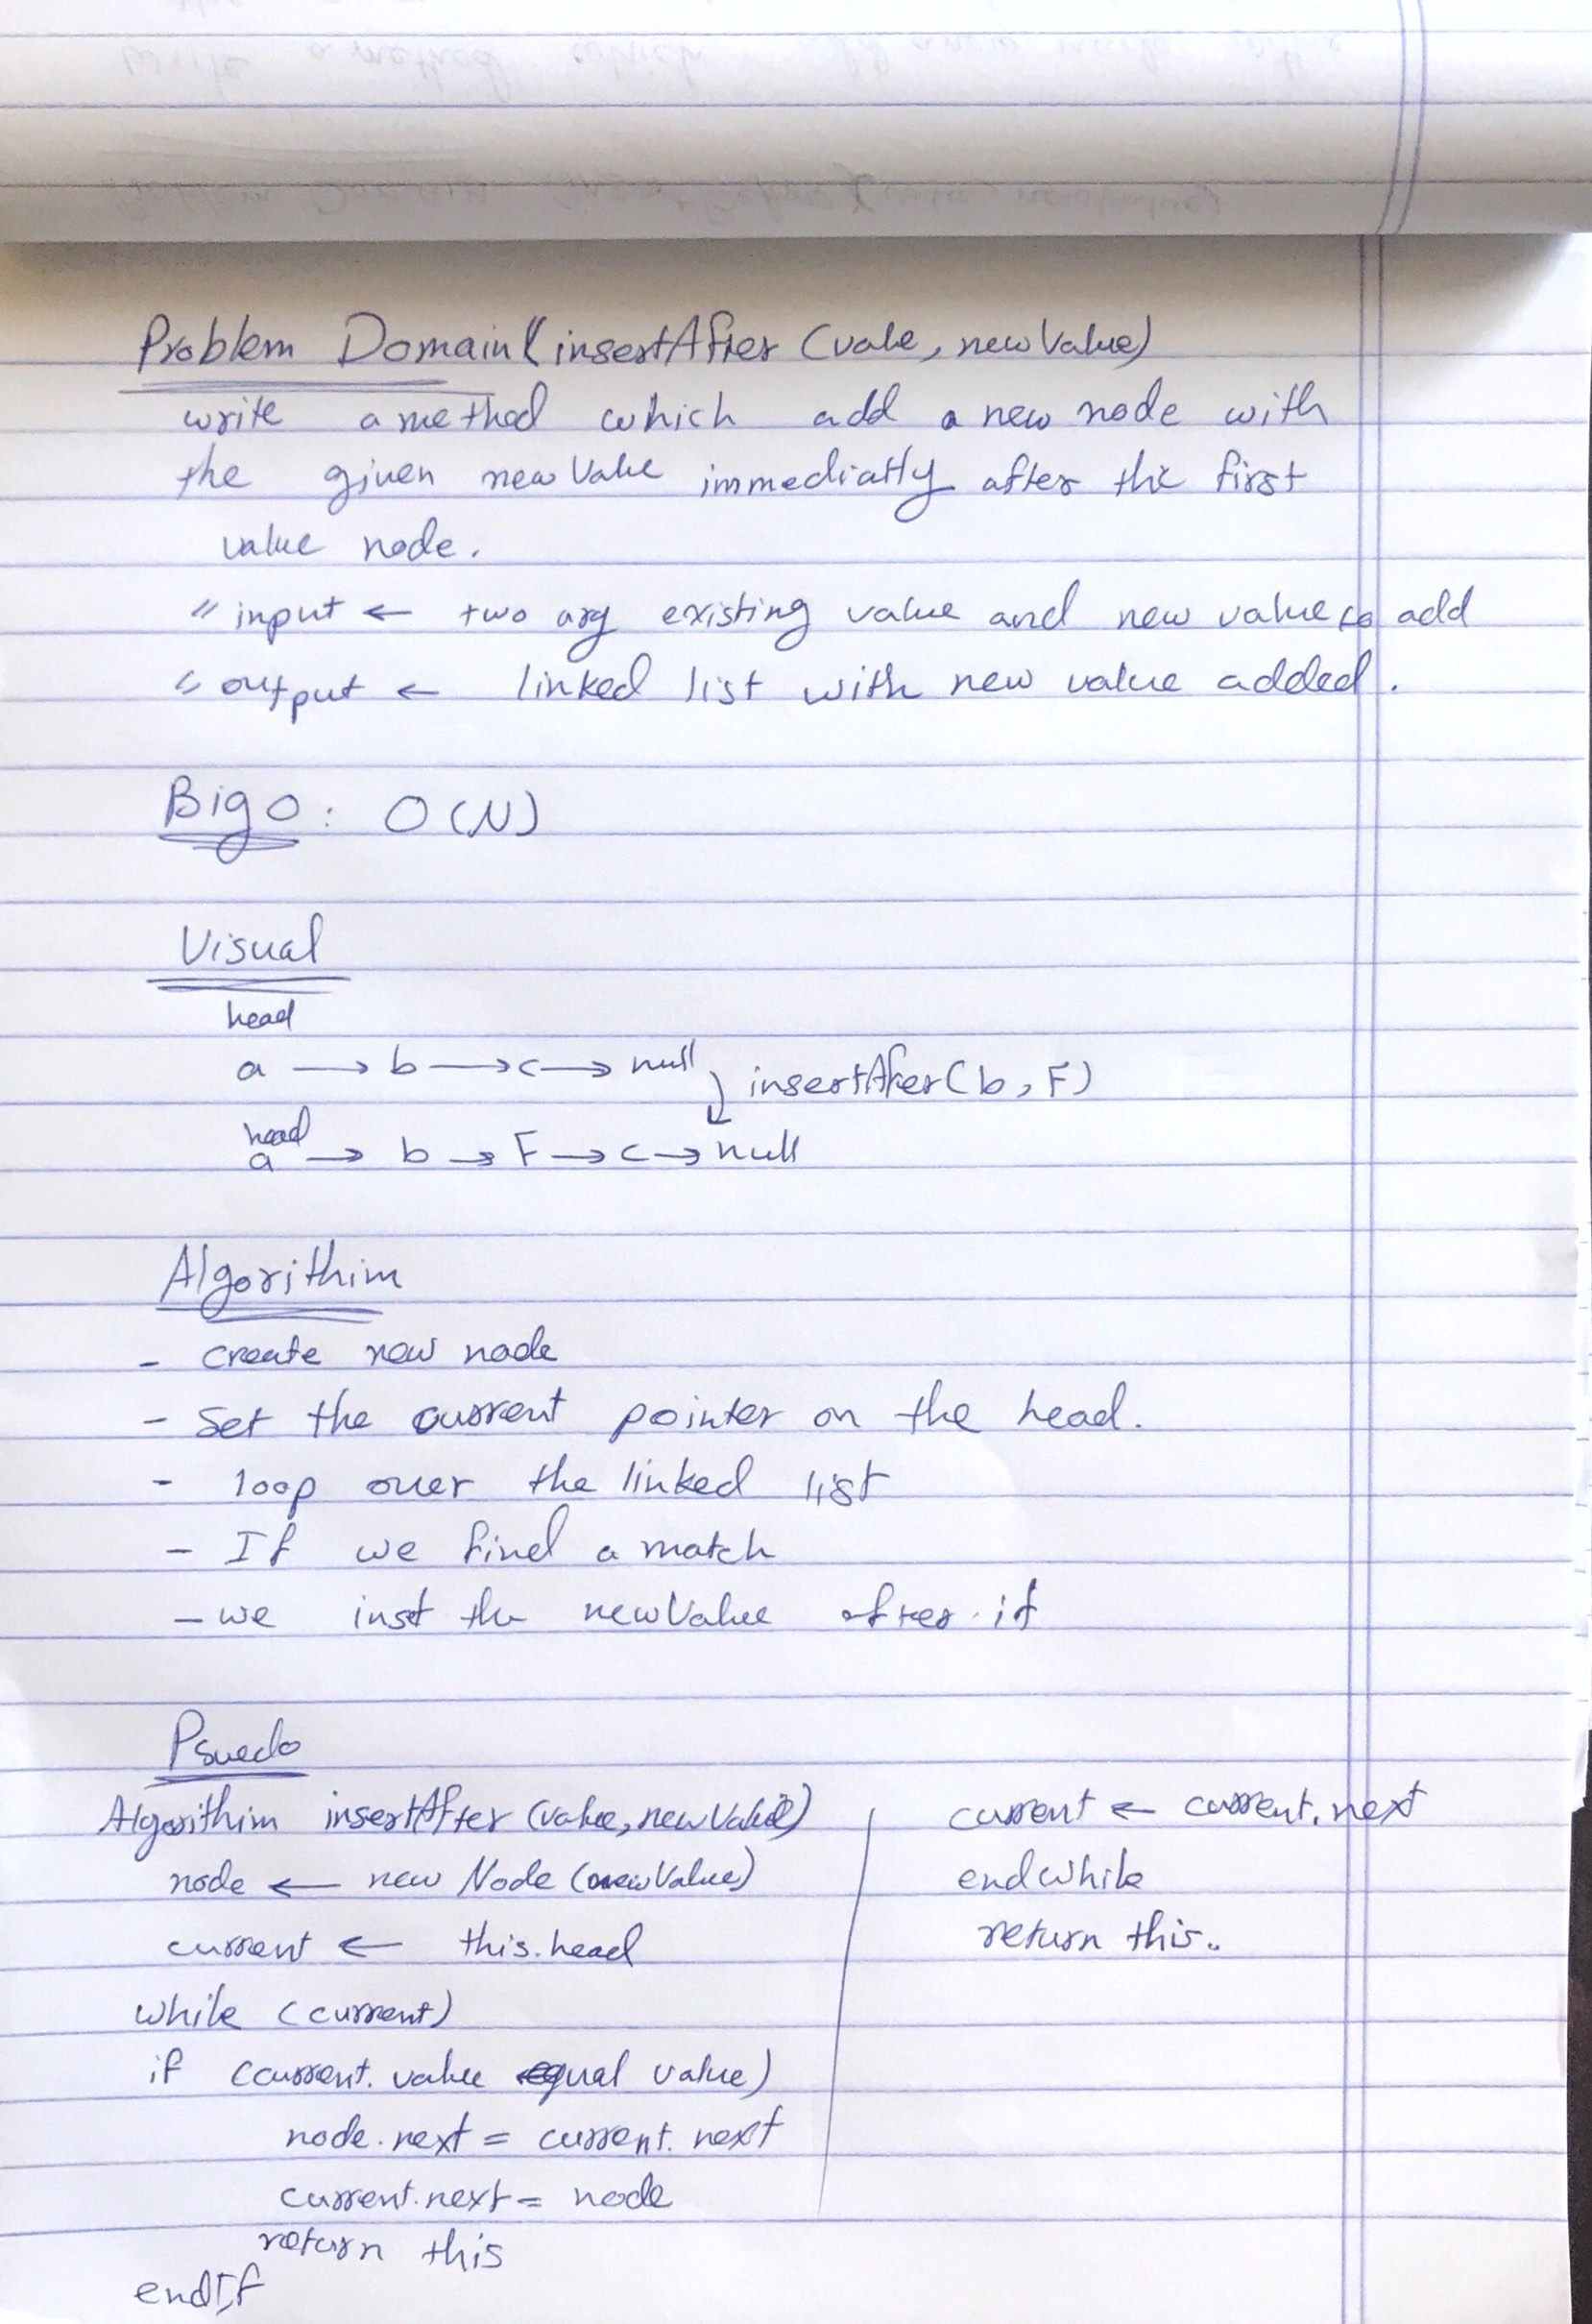 Problem Domain (insertAfter (value, newValue)
write a method which add a new node with
the given newValue immediatly after the first
value node.
" input ← two arg existing value and new value to add
" output ← linked list with new value added.
Big O : O(N)
Visual
head
a → b → c → null
insertAfter(b, F)
head
a → b → F → c → null
Algorithim
- create new node
- Set the current pointer on the head.
- loop over the linked list
- If we find a match
- we inst the newValue after it
Psuedo
Algorithim insertAfter (value, newValue)
node ← new Node (newValue)
current ← this.head
while (current)
if (current.value equal value)
node.next = current.next
current.next = node
return this
endIf
current ← current.next
endwhile
return this.